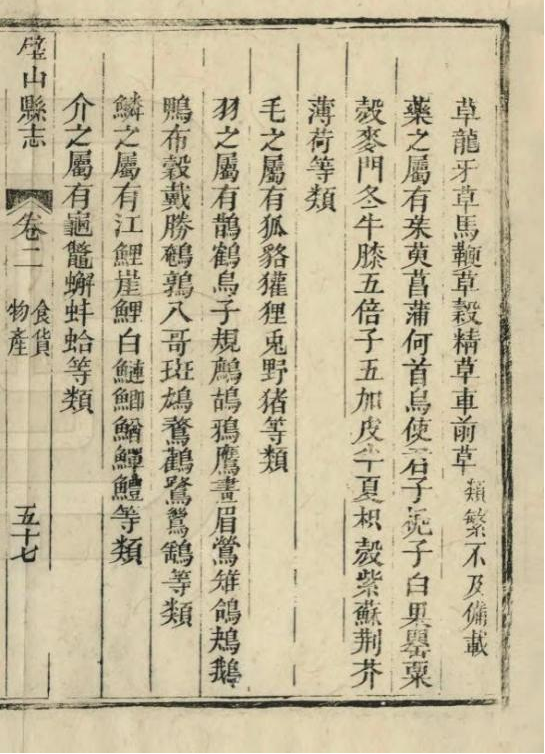 草龍牙草馬鞭草穀精草車前草類繁不及備載
藥之屬有茱萸菖蒲何首烏使君子梔子白果罌粟
殼麥門冬牛膝五倍子五加皮半夏枳殼紫蘇荆芥
薄荷等類
毛之屬有狐貉獾狸兎野猪等類
羽之屬有鵲鶴烏子規鷓鴣鴉鷹畫眉鶯雉鴿鴆鵝
鴨布穀戴勝鵪鶉八哥斑鳩鶖鸛鷺鴛鶴等類
鱗之屬有江鯉崖鯉白鰱鯽鰌鱓鱧等類
介之屬有龜鼈蠏蚌蛤等類
璧山縣志
卷二
食貨
物產
五十七